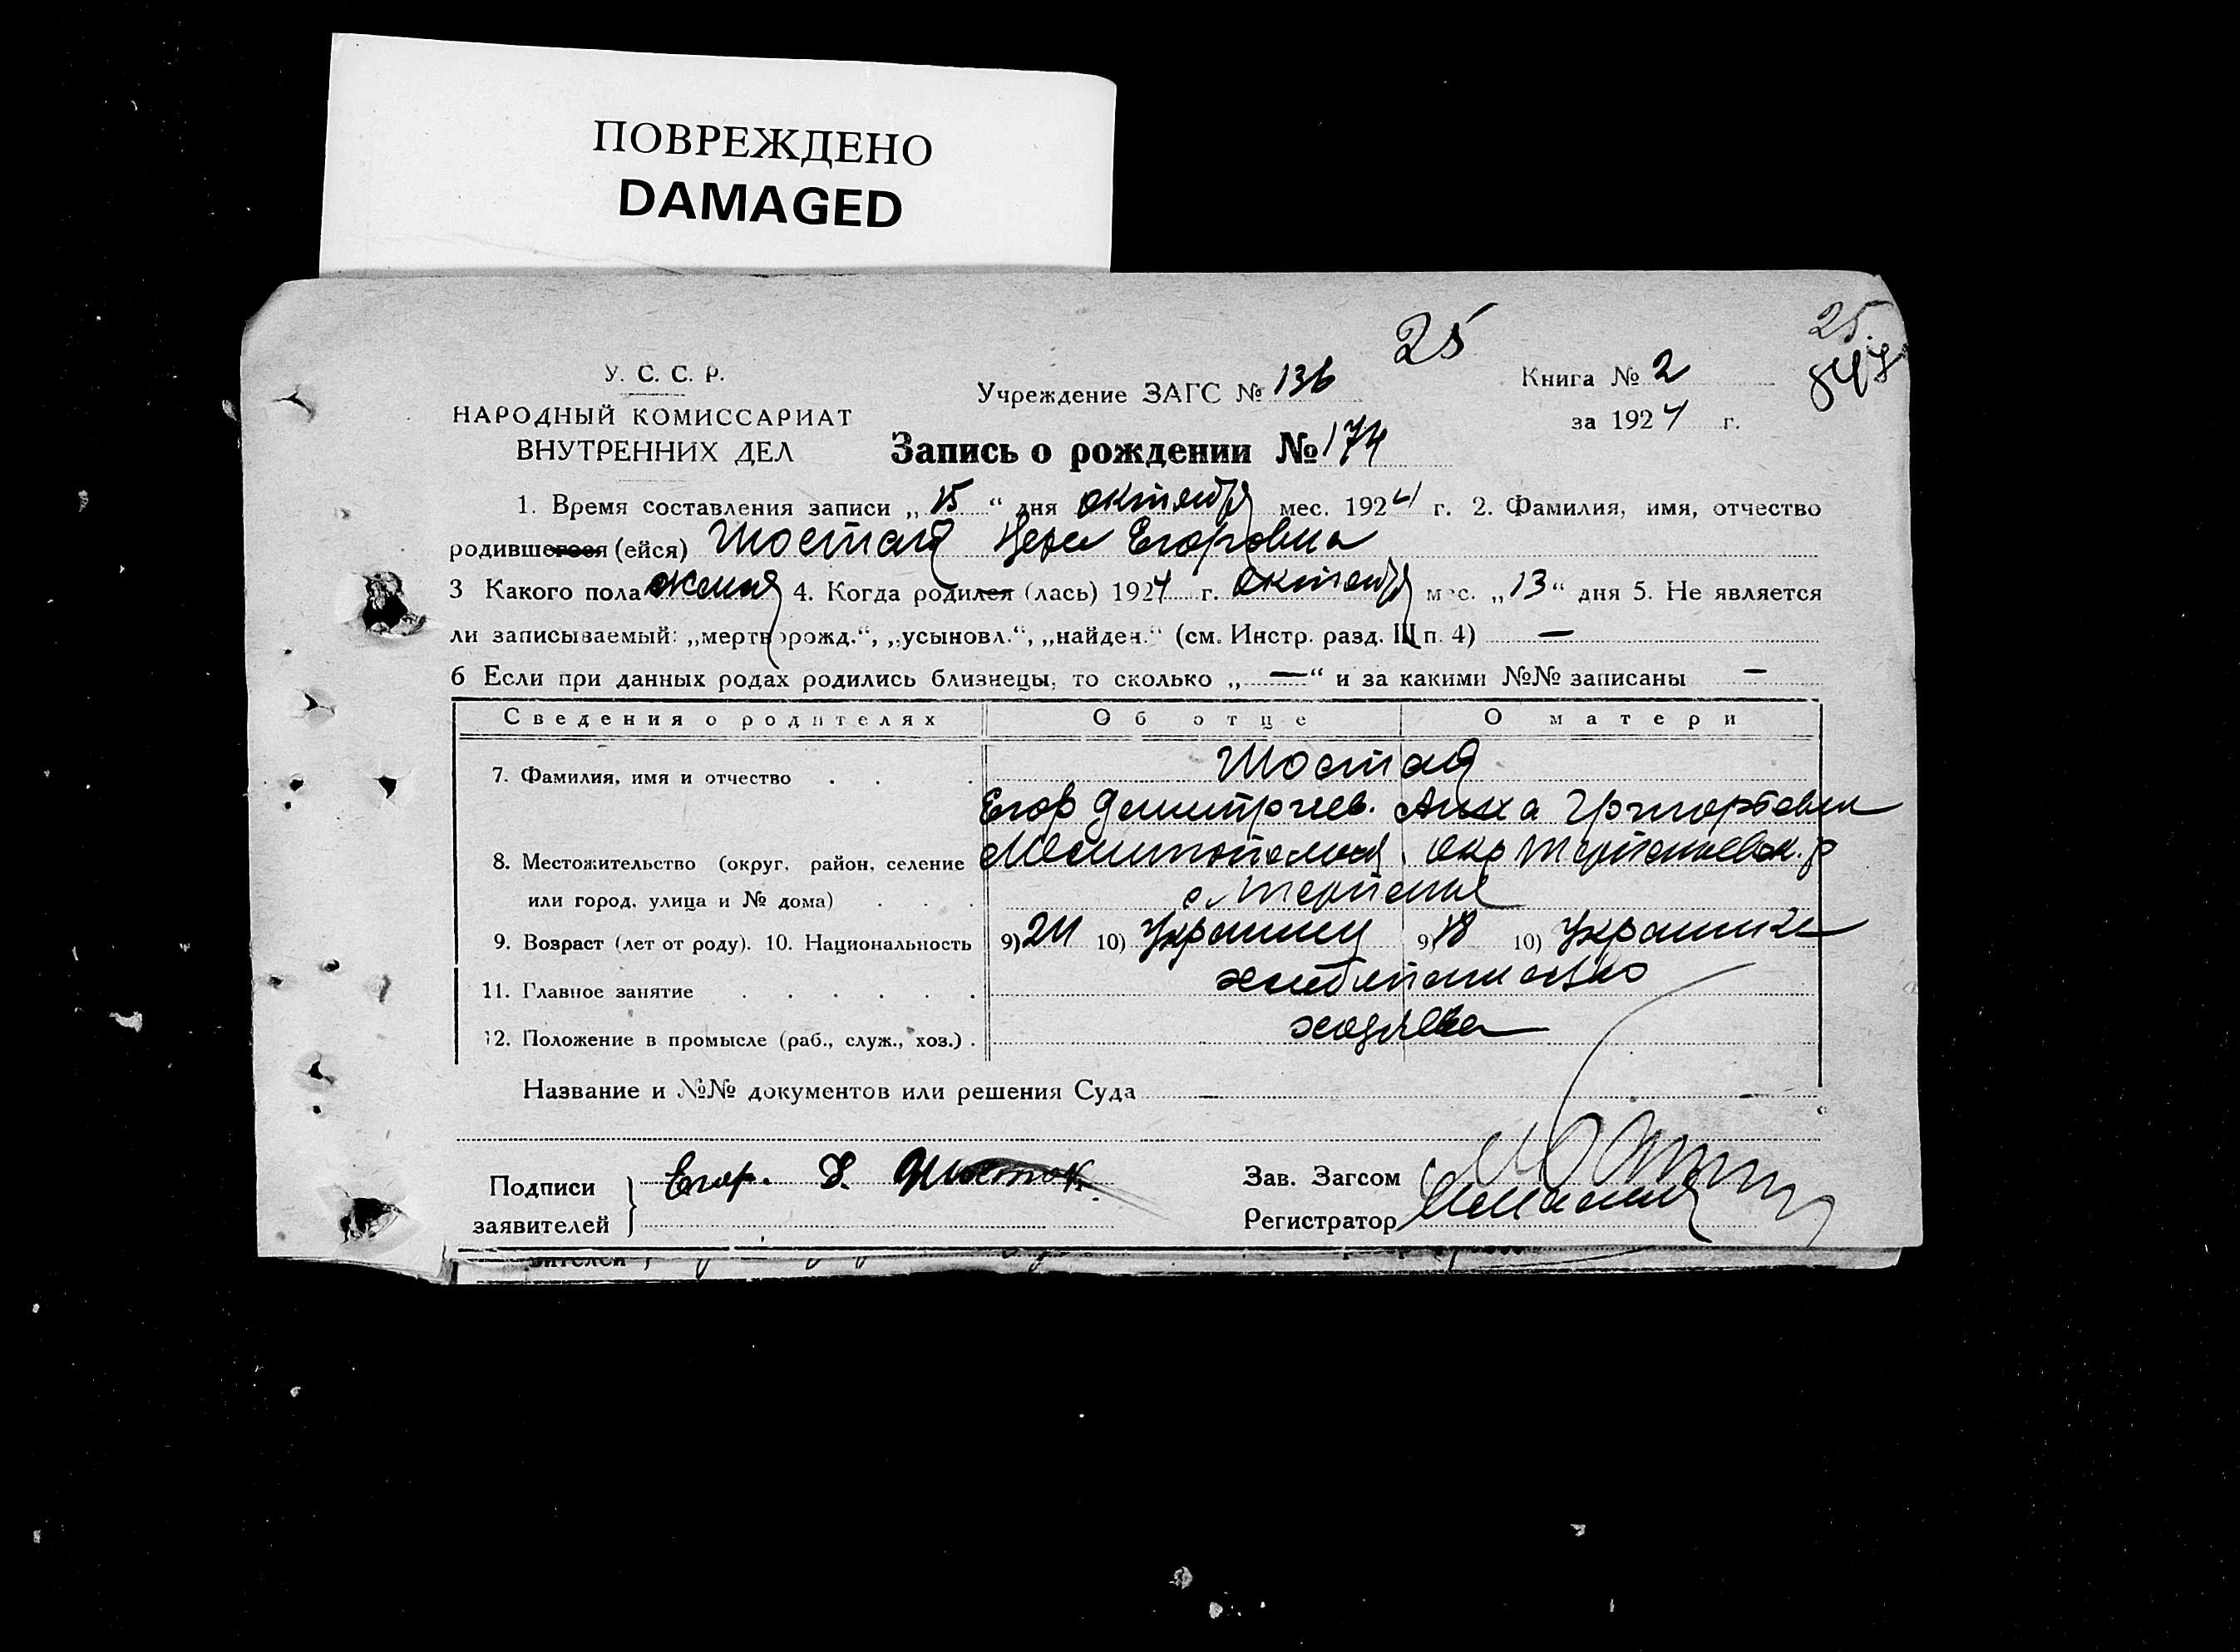 ПОВРЕЖДЕНО
DAMAGED
25
25
847
У. С. С. Р.
НАРОДНЫЙ КОМИССАРИАТ
ВНУТРЕННИХ ДЕЛ
Учреждение ЗАГС № 136
Книга № 2
за 1924 г.
Запись о рождении № 174
1. Время составления записи „15“ дня октября мес. 1924 г. 2. Фамилия, имя, отчество
родившегося (ейся) Шостак Егоровна
3 Какого пола женск 4. Когда родился (лась) 1924 г. октября мес. „13“ дня 5. Не является
ли записываемый: „мертворожд.“, „усыновл.“, „найден.“ (см. Инстр. разд. III п. 4) —
6 Если при данных родах родились близнецы, то сколько „—“ и за какими №№ записаны —
Сведения о родителях Об отце О матери
7. Фамилия, имя и отчество . . . Шостак
Егор Димитриев. Анна Григорьевна
8. Местожительство (округ, район, селение Мелитопольск. окр Терпеньевск. р
или город, улица и № дома) . . . с. Терпенье
9. Возраст (лет от роду). 10. Национальность 9) 24 10) Украинец 9) 18 10) Украинка
11. Главное занятие . . . . . . хлебопашество
12. Положение в промысле (раб., служ., хоз.) . хозяева
Название и №№ документов или решения Суда —
Подписи
заявителей } Егор. Д. Шостак.
Зав. Загсом
Регистратор